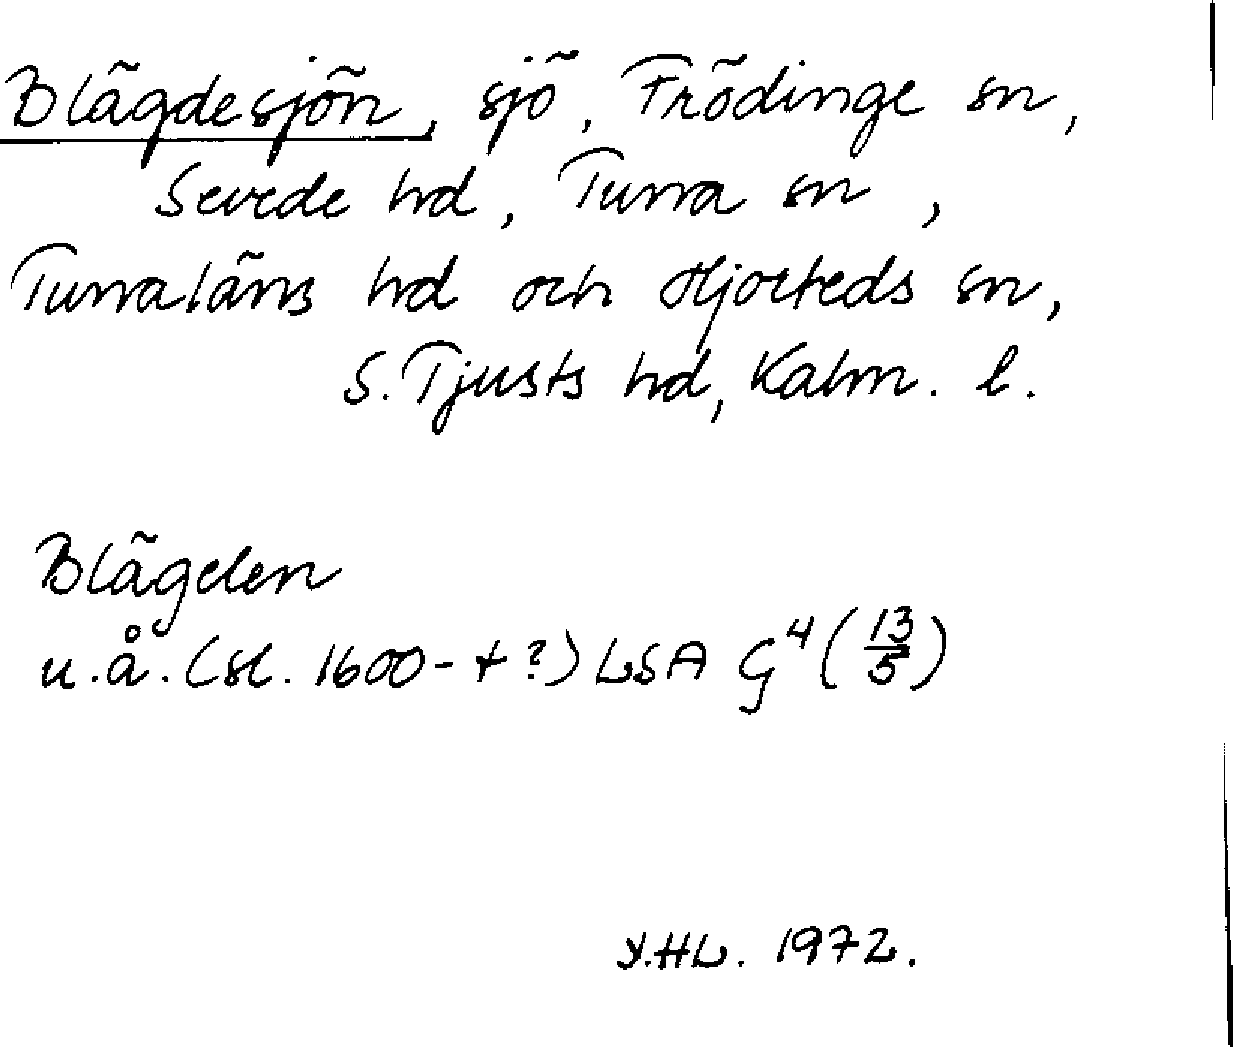 Blägdesjön, sjö, Frödinge sn,
Sevede hd, Tuna sn,
Tunaläns hd och Hjorteds sn,
S. Tjusts hd, Kalm. l.
Blägden
u.å. (sl. 1600-t?) LSA G⁴ (13/5)
Y.HL. 1972.